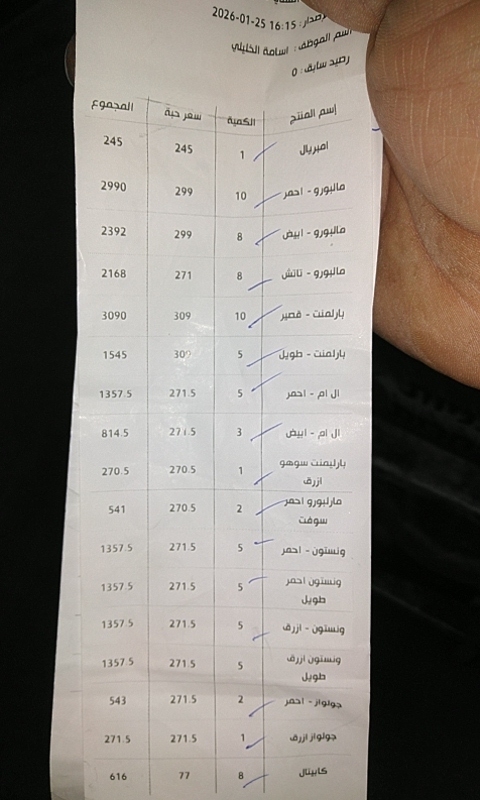 إصدار: 16:15 2026-01-25
اسم الموظف: اسامة الخليلي
رصيد سابق: 0
إسم المنتج الكمية سعر حبة المجموع
امبريال 1 245 245
مالبورو - احمر 10 299 2990
مالبورو - ابيض 8 299 2392
مالبورو - تاتش 8 271 2168
بارلمنت - قصير 10 309 3090
بارلمنت - طويل 5 309 1545
ال ام - احمر 5 271.5 1357.5
ال ام - ابيض 3 271.5 814.5
بارليمنت سوهو 1 270.5 270.5
ازرق
مارلبورو احمر 2 270.5 541
سوفت
ونستون - احمر 5 271.5 1357.5
ونستون احمر 5 271.5 1357.5
طويل
ونستون - ازرق 5 271.5 1357.5
ونستون ازرق 5 271.5 1357.5
طويل
جولواز - احمر 2 271.5 543
جولواز ازرق 1 271.5 271.5
كابيتال 8 77 616